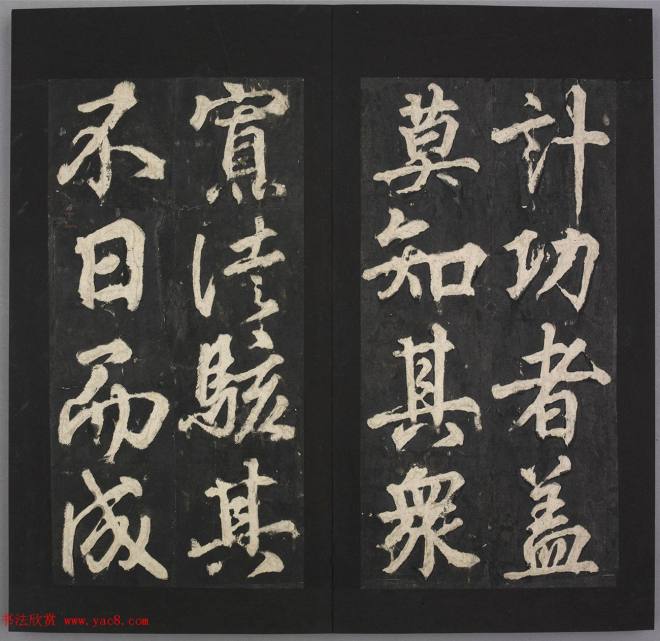 計功者盖
莫知其衆
實徒駭其
不日而成
书法欣赏 www.yac8.com